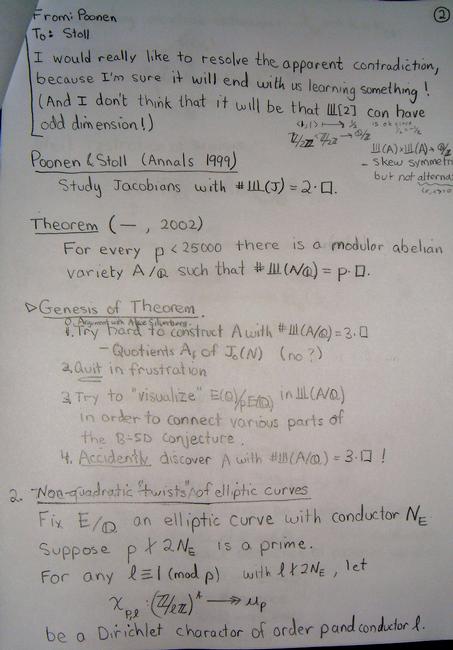 From: Poonen
②
To: Stoll
I would really like to resolve the apparent contradiction,
because I'm sure it will end with us learning something!
(And I don't think that it will be that Ш[2] can have
odd dimension!)
Ш(A)×Ш(A)→ℚ/ℤ
- skew symmetri
but not alterna
Poonen & Stoll (Annals 1999)
Study Jacobians with #Ш(J) = 2·□.
Theorem (—, 2002)
For every p < 25000 there is a modular abelian
variety A/ℚ such that #Ш(A/ℚ) = p·□.
▷ Genesis of Theorem.
0. Argument with
1. Try hard to construct A with #Ш(A/ℚ) = 3·□
- Quotients A_f of J_0(N) (no?)
2. Quit in frustration
3. Try to "visualize" E(ℚ)/pE(ℚ) in Ш(A/ℚ)
in order to connect various parts of
the B-SD conjecture.
4. Accidently discover A with #Ш(A/ℚ) = 3·□!
2. Non-quadratic "twists" of elliptic curves
Fix E/ℚ an elliptic curve with conductor N_E.
Suppose p ∤ 2N_E is a prime.
For any ℓ ≡ 1 (mod p) with ℓ ∤ 2N_E, let
χ_{p,ℓ} : (ℤ/ℓℤ)* ↠ μ_p
be a Dirichlet charactor of order p and conductor ℓ.